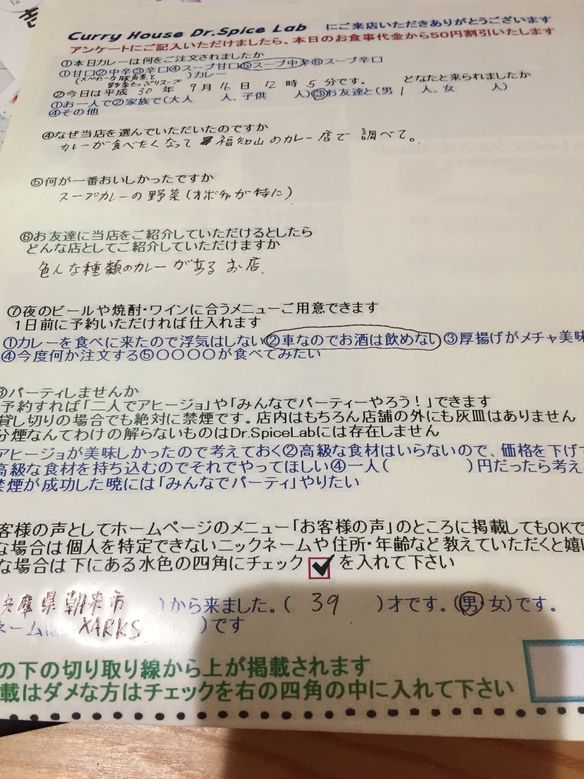 Curry House Dr.Spice Lab にご来店いただきありがとうございます
アンケートにご記入いただけましたら、本日のお食事代金から50円割引いたします
①本日カレーは何をご注文されましたか
①甘口②中辛③辛口④スープ甘口⑤スープ中辛⑥スープ辛口
)カレー
②今日は平成 30 年 9 月 16 日 12 時 5 分です。 どなたと来られましたか
①お一人で②家族で(大人 人、子供 人)③お友達と(男 1 人、女 人)
④その他
④なぜ当店を選んでいただいたのですか
カレーが食べたくなって 福知山のカレー店で 調べて。
⑤何が一番おいしかったですか
スープカレーの野菜(カボチャが特に)
⑥お友達に当店をご紹介していただけるとしたら
どんな店としてご紹介していただけますか
色んな種類のカレーがあるお店.
⑦夜のビールや焼酎・ワインに合うメニューご用意できます
1日前に予約いただければ仕入れます
①カレーを食べに来たので浮気はしない②車なのでお酒は飲めない③厚揚げがメチャ美味
④今度何か注文する⑤〇〇〇〇が食べてみたい
パーティしませんか
予約すれば「二人でアヒージョ」や「みんなでパーティーやろう!」できます
貸し切りの場合でも絶対に禁煙です。店内はもちろん店舗の外にも灰皿はありません
分煙なんてわけの解らないものはDr.SpiceLabには存在しません
アヒージョが美味しかったので考えておく②高級な食材はいらないので、価格を下げて
高級な食材を持ち込むのでそれでやってほしい④一人( )円だったら考え
禁煙が成功した暁には「みんなでパーティ」やりたい
客様の声としてホームページのメニュー「お客様の声」のところに掲載してもOKで
な場合は個人を特定できないニックネームや住所・年齢など教えていただくと嬉
な場合は下にある水色の四角にチェック を入れて下さい
兵庫県朝来市 )から来ました。( 39 )才です。(男・女)です。
ネームは XARKS )です
の下の切り取り線から上が掲載されます
載はダメな方はチェックを右の四角の中に入れて下さい